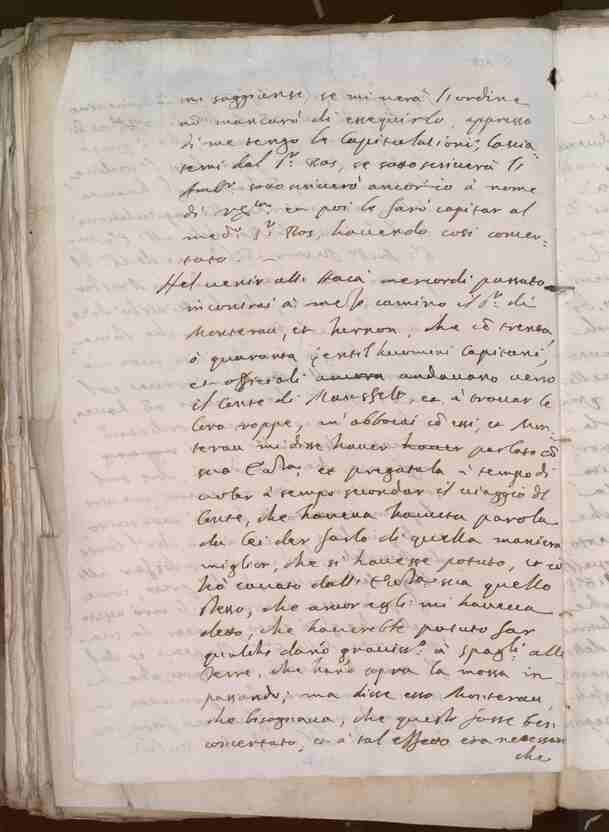 mi soggionse, se mi verà l'ordine
nō mancarò di essequirlo, appresso
di me tengo le Capitulationi, lascia
temi dal S.r Ros, se sottoscriverà l'
Amb.r sottoscriverò ancor io à nome
di et poi le farò capitar al
med.o S.r Ros, havendo così concer-
tato.
Nel venir all' Haia mercordì passato
incontrai à mezo camino il S.r di
Monterau, et Vernon, che cō trenta,
ò quaranta gentil'huomini Capitani,
et offitiali andavano verso
il Conte di Mansfelt, et à trovar le
loro troppe, m'abboccai cō essi, et Mon-
terau mi disse haver parlato cō
sua et pregatala à tempo di
à tempo secondar il viaggio del
Conte, che haveva havuta parola
da lei de farlo di quella maniera
miglior, che si havesse potuto, et io
hò cavato dall' sua quello
stesso, che ancor egli mi haveva
detto, che haverebbe potuto far
qualche dano graviss.o à Spag.li alle
Terre, che hano sopra la Mossa in
passando; ma disse esso Monterau,
che bisognava, che questo fosse ben
concertato, et à tal effetto era necessario
che